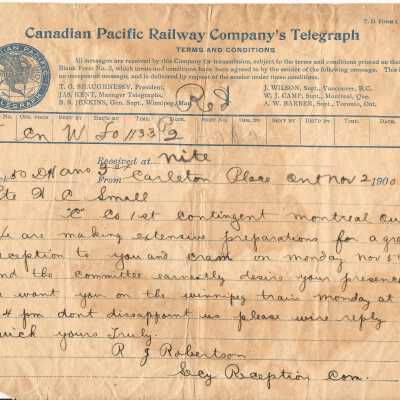 T. D. Form 1
Canadian Pacific Railway Company's Telegraph
TERMS AND CONDITIONS
All messages are received by this Company for transmission, subject to the terms and conditions printed on the
Blank Form No. 2, which terms and conditions have been agreed to by the sender of the following message. This is
an unrepeated message, and is delivered by request of the sender under these conditions.
T. G. SHAUGHNESSY, President.
JAS. KENT, Manager Telegraphs,
B. S. JENKINS, Gen. Supt., Winnipeg, Man.
J. WILSON, Supt., Vancouver, B.C.
W. J. CAMP, Supt., Montreal, Que.
A. W. BARBER, Supt., Toronto, Ont.
CANADIAN PACIFIC
TELEGRAPH
Red
SENT BY TIME
Cn W 1133 P2
Received at nite
From Carleton Place Ont Nov 2 1900
Pte H C Small
"C" Co 1st Contingent Montreal Que
We are making extensive preparations for a great
reception to you and Cram on Monday Nov 5th
and the committee earnestly desire your presence
we want you on the Winnipeg train Monday at
4 pm dont dissappoint us please wire reply
quick yours Truly.
R J Robertson
Secy Reception Com.